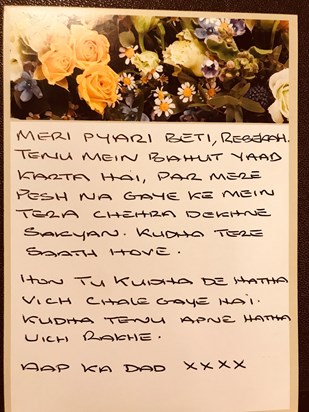 MERI PYARI BETI, REBEKAH.
TENU MEIN BAHUT YAAD
KARTA HAI, PAR MERE
PESH NA GAYE KE MEIN
TERA CHEHRA DEKHNE
SAKYAN. KUDHA TERE
SAATH HOVE.
HUN TU KUDHA DE HATHA
VICH CHALE GAYE HAI.
KUDHA TENU APNE HATHA
VICH RAKHE.
AAP KA DAD XXXX